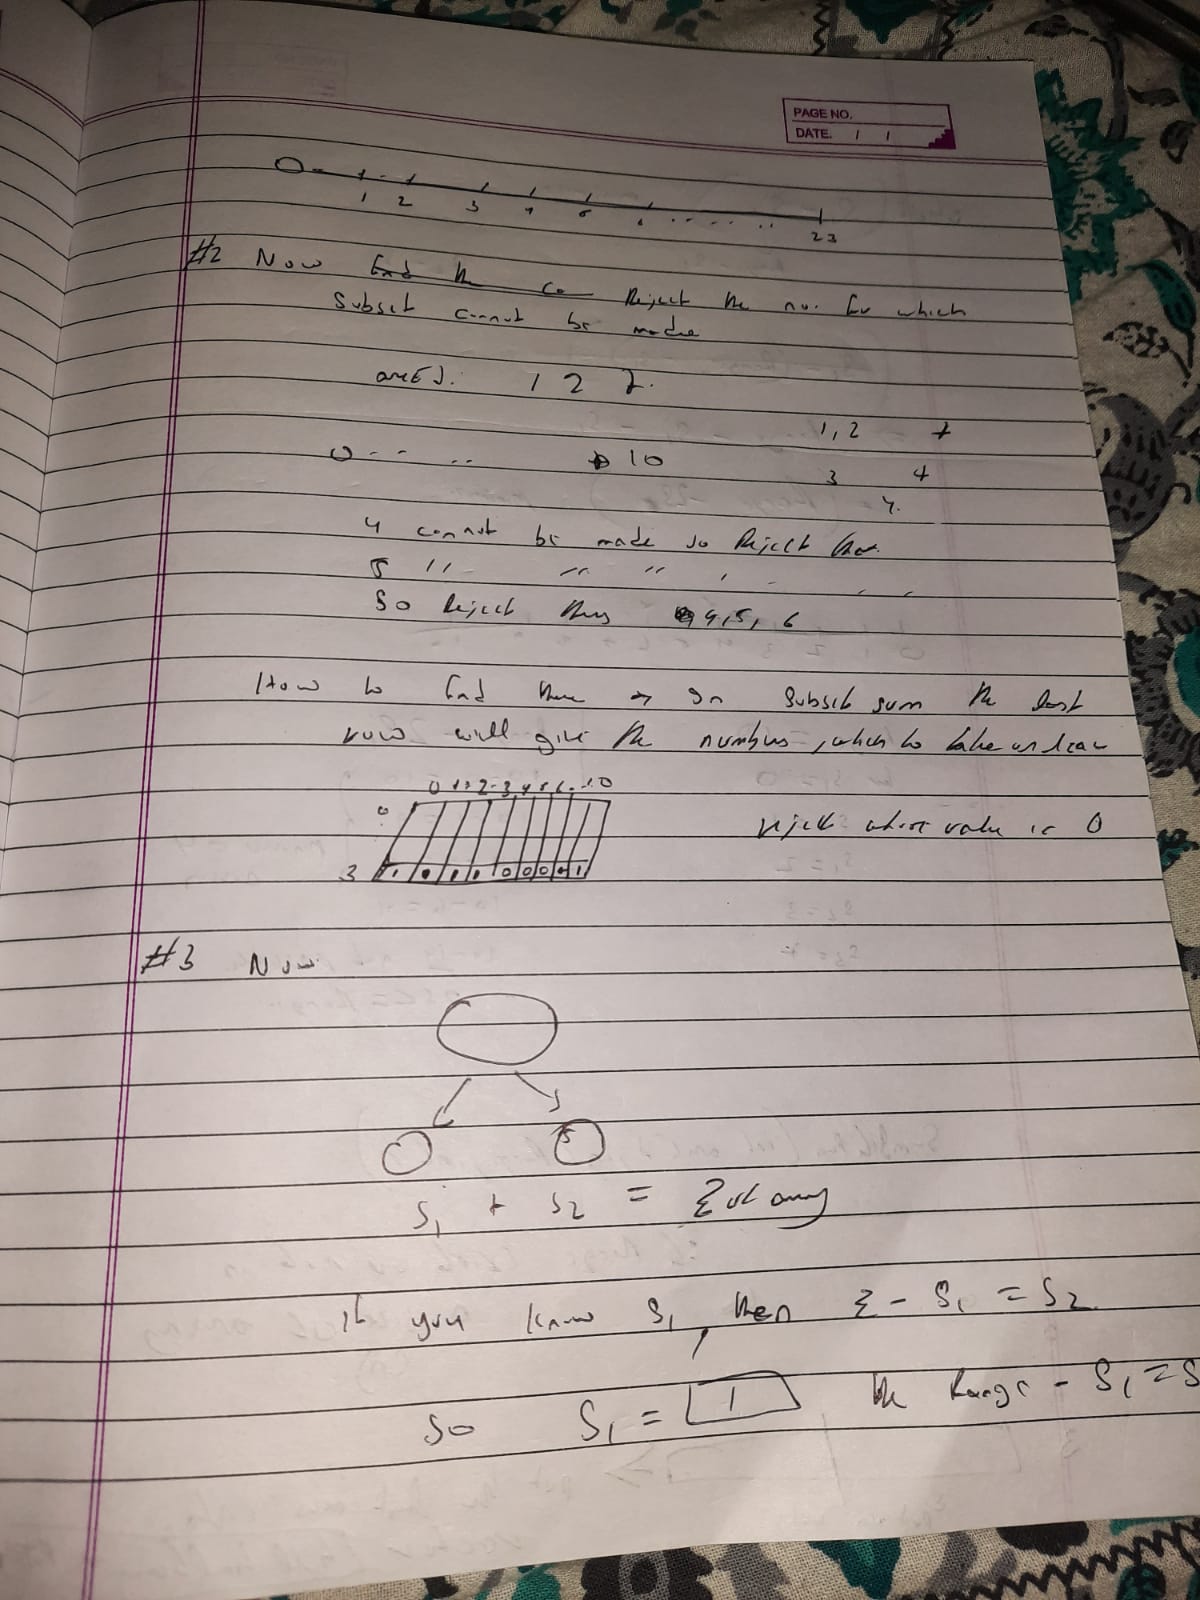 PAGE NO.
DATE. / /
0
1 2 3 4 5 6 ........ 23
#2 Now find the ca Reject the no. for which
Subset cannot be made
arr[]. 1 2 7.
1, 2 7
0 - - .. 10
3 4
4.
4 cannot be made so Reject that.
5 11 " " "
So Reject they 4, 5, 6
How to find there → In subset sum the last
row will give the numbers, which to take or leave
0 1 2 3 4 5 6 .. 10
0
reject where value is 0
3 1 1 1 1 0 0 0 1
#3 Now
S1 + S2 = Σ of array
if you know S1, then Σ - S1 = S2
So S1 = 1 the Range - S1 = S